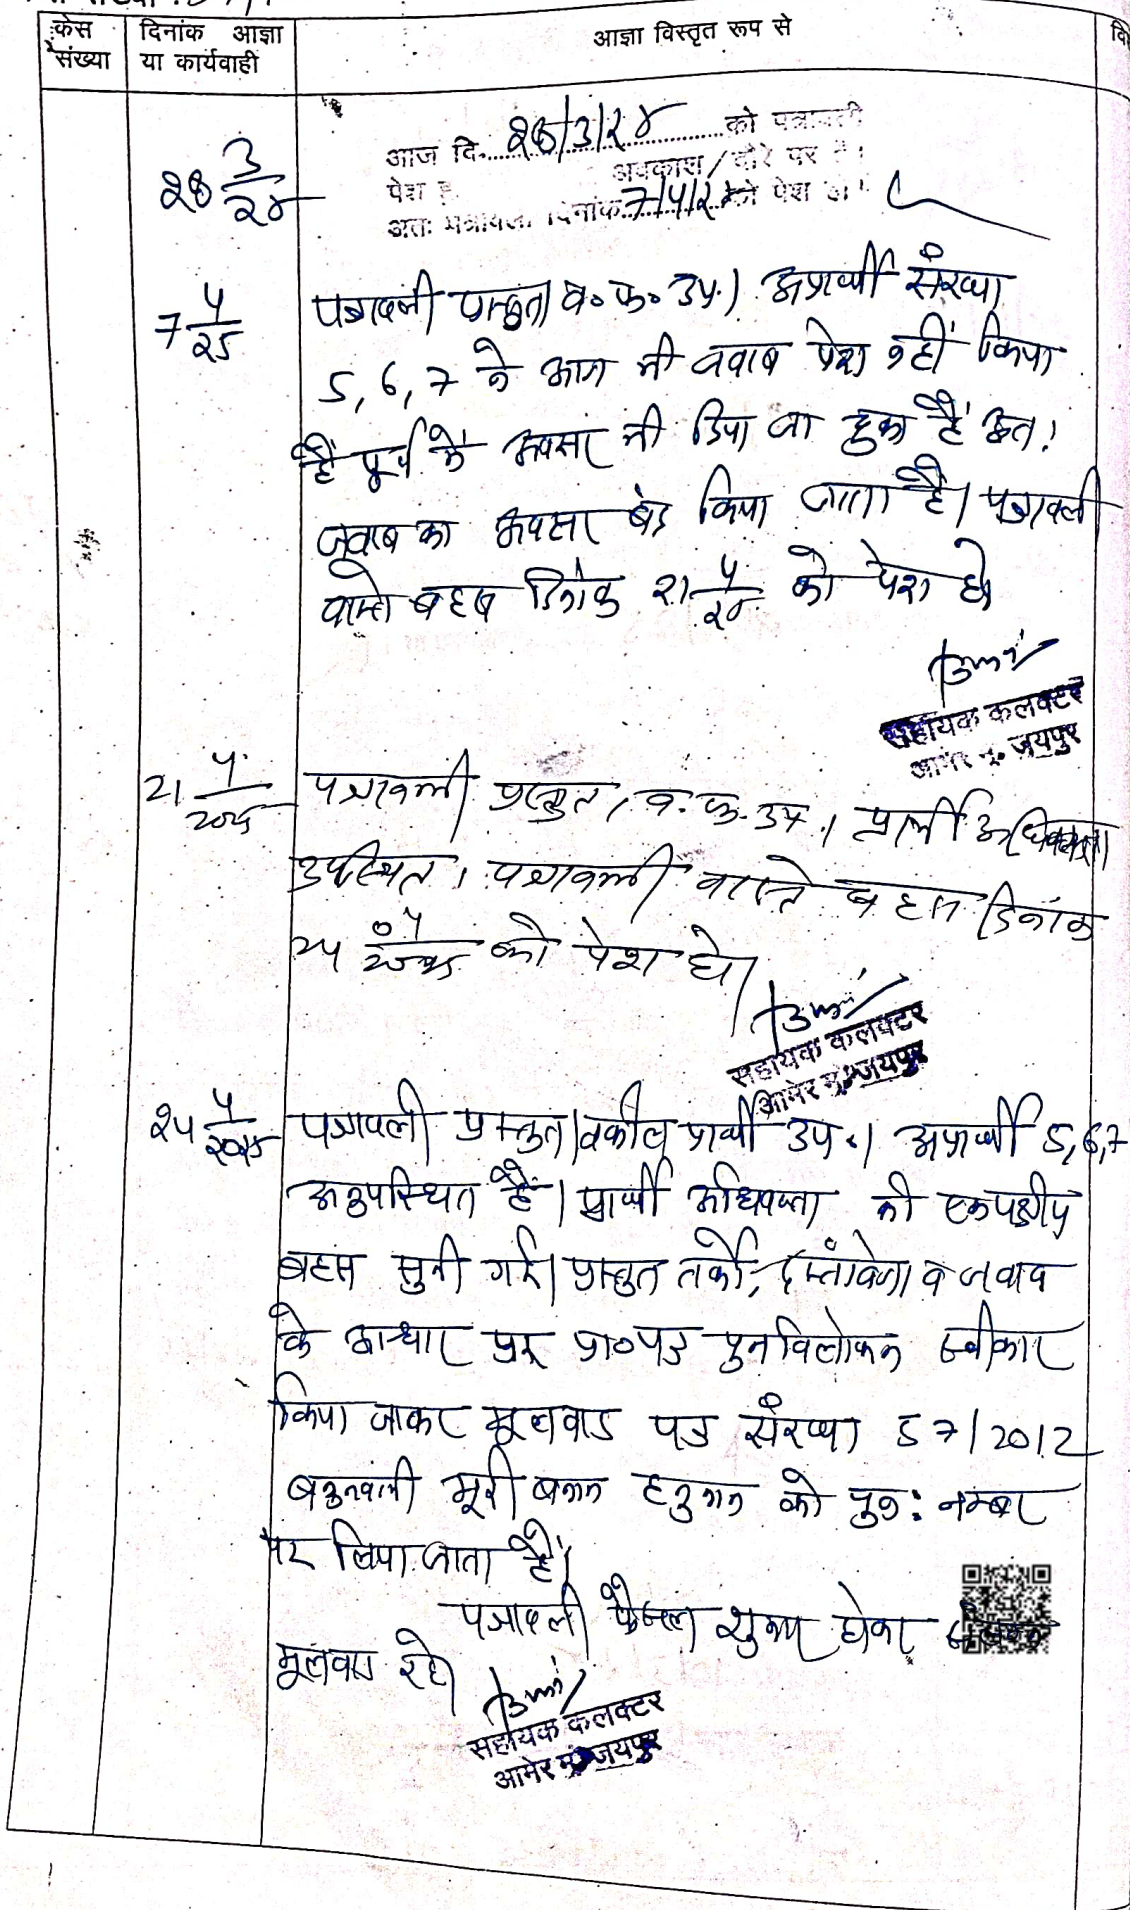 केस संख्या
दिनांक आज्ञा या कार्यवाही
आज्ञा विस्तृत रूप से
28 3/25
आज दि. 28/3/25 को पत्रावली
पेश अवकाश / दौरे पर है।
अतः पत्रावली दिनांक 7/4/25 को पेश हो।
7 4/25
पत्रावली प्रस्तुत। व० फ० उप.। अप्रार्थी संख्या
5, 6, 7 ने आज भी जवाब पेश नहीं किया
है पूर्व में अवसर भी दिया जा चुका है अतः
जवाब का अवसर बंद किया जाता है। पत्रावली
वास्ते बहस दिनांक 21 4/25 को पेश हो
सहायक कलक्टर
आमेर मु. जयपुर
21 4/2025
पत्रावली प्रस्तुत, व. फ. उप.। प्रार्थी अधिवक्ता
उपस्थित। पत्रावली वास्ते बहस दिनांक
24 04/2025 को पेश हो।
सहायक कलक्टर
आमेर मु. जयपुर
24 4/2025
पत्रावली प्रस्तुत। वकील प्रार्थी उप.। अप्रार्थी 5, 6, 7
अनुपस्थित हैं। प्रार्थी अधिवक्ता की एकपक्षीय
बहस सुनी गई। प्रस्तुत तर्कों, दस्तावेजों व जवाब
के आधार पर प्रा०पत्र पुनर्विलोकन स्वीकार
किया जाकर मूलवाद पत्र संख्या 57/2012
बउनवानी मूली बनाम हनुमान को पुनः नम्बर
पर लिया जाता है।
पत्रावली फैसल शुमार होकर
मूलवाद रहे।
सहायक कलक्टर
आमेर मु. जयपुर